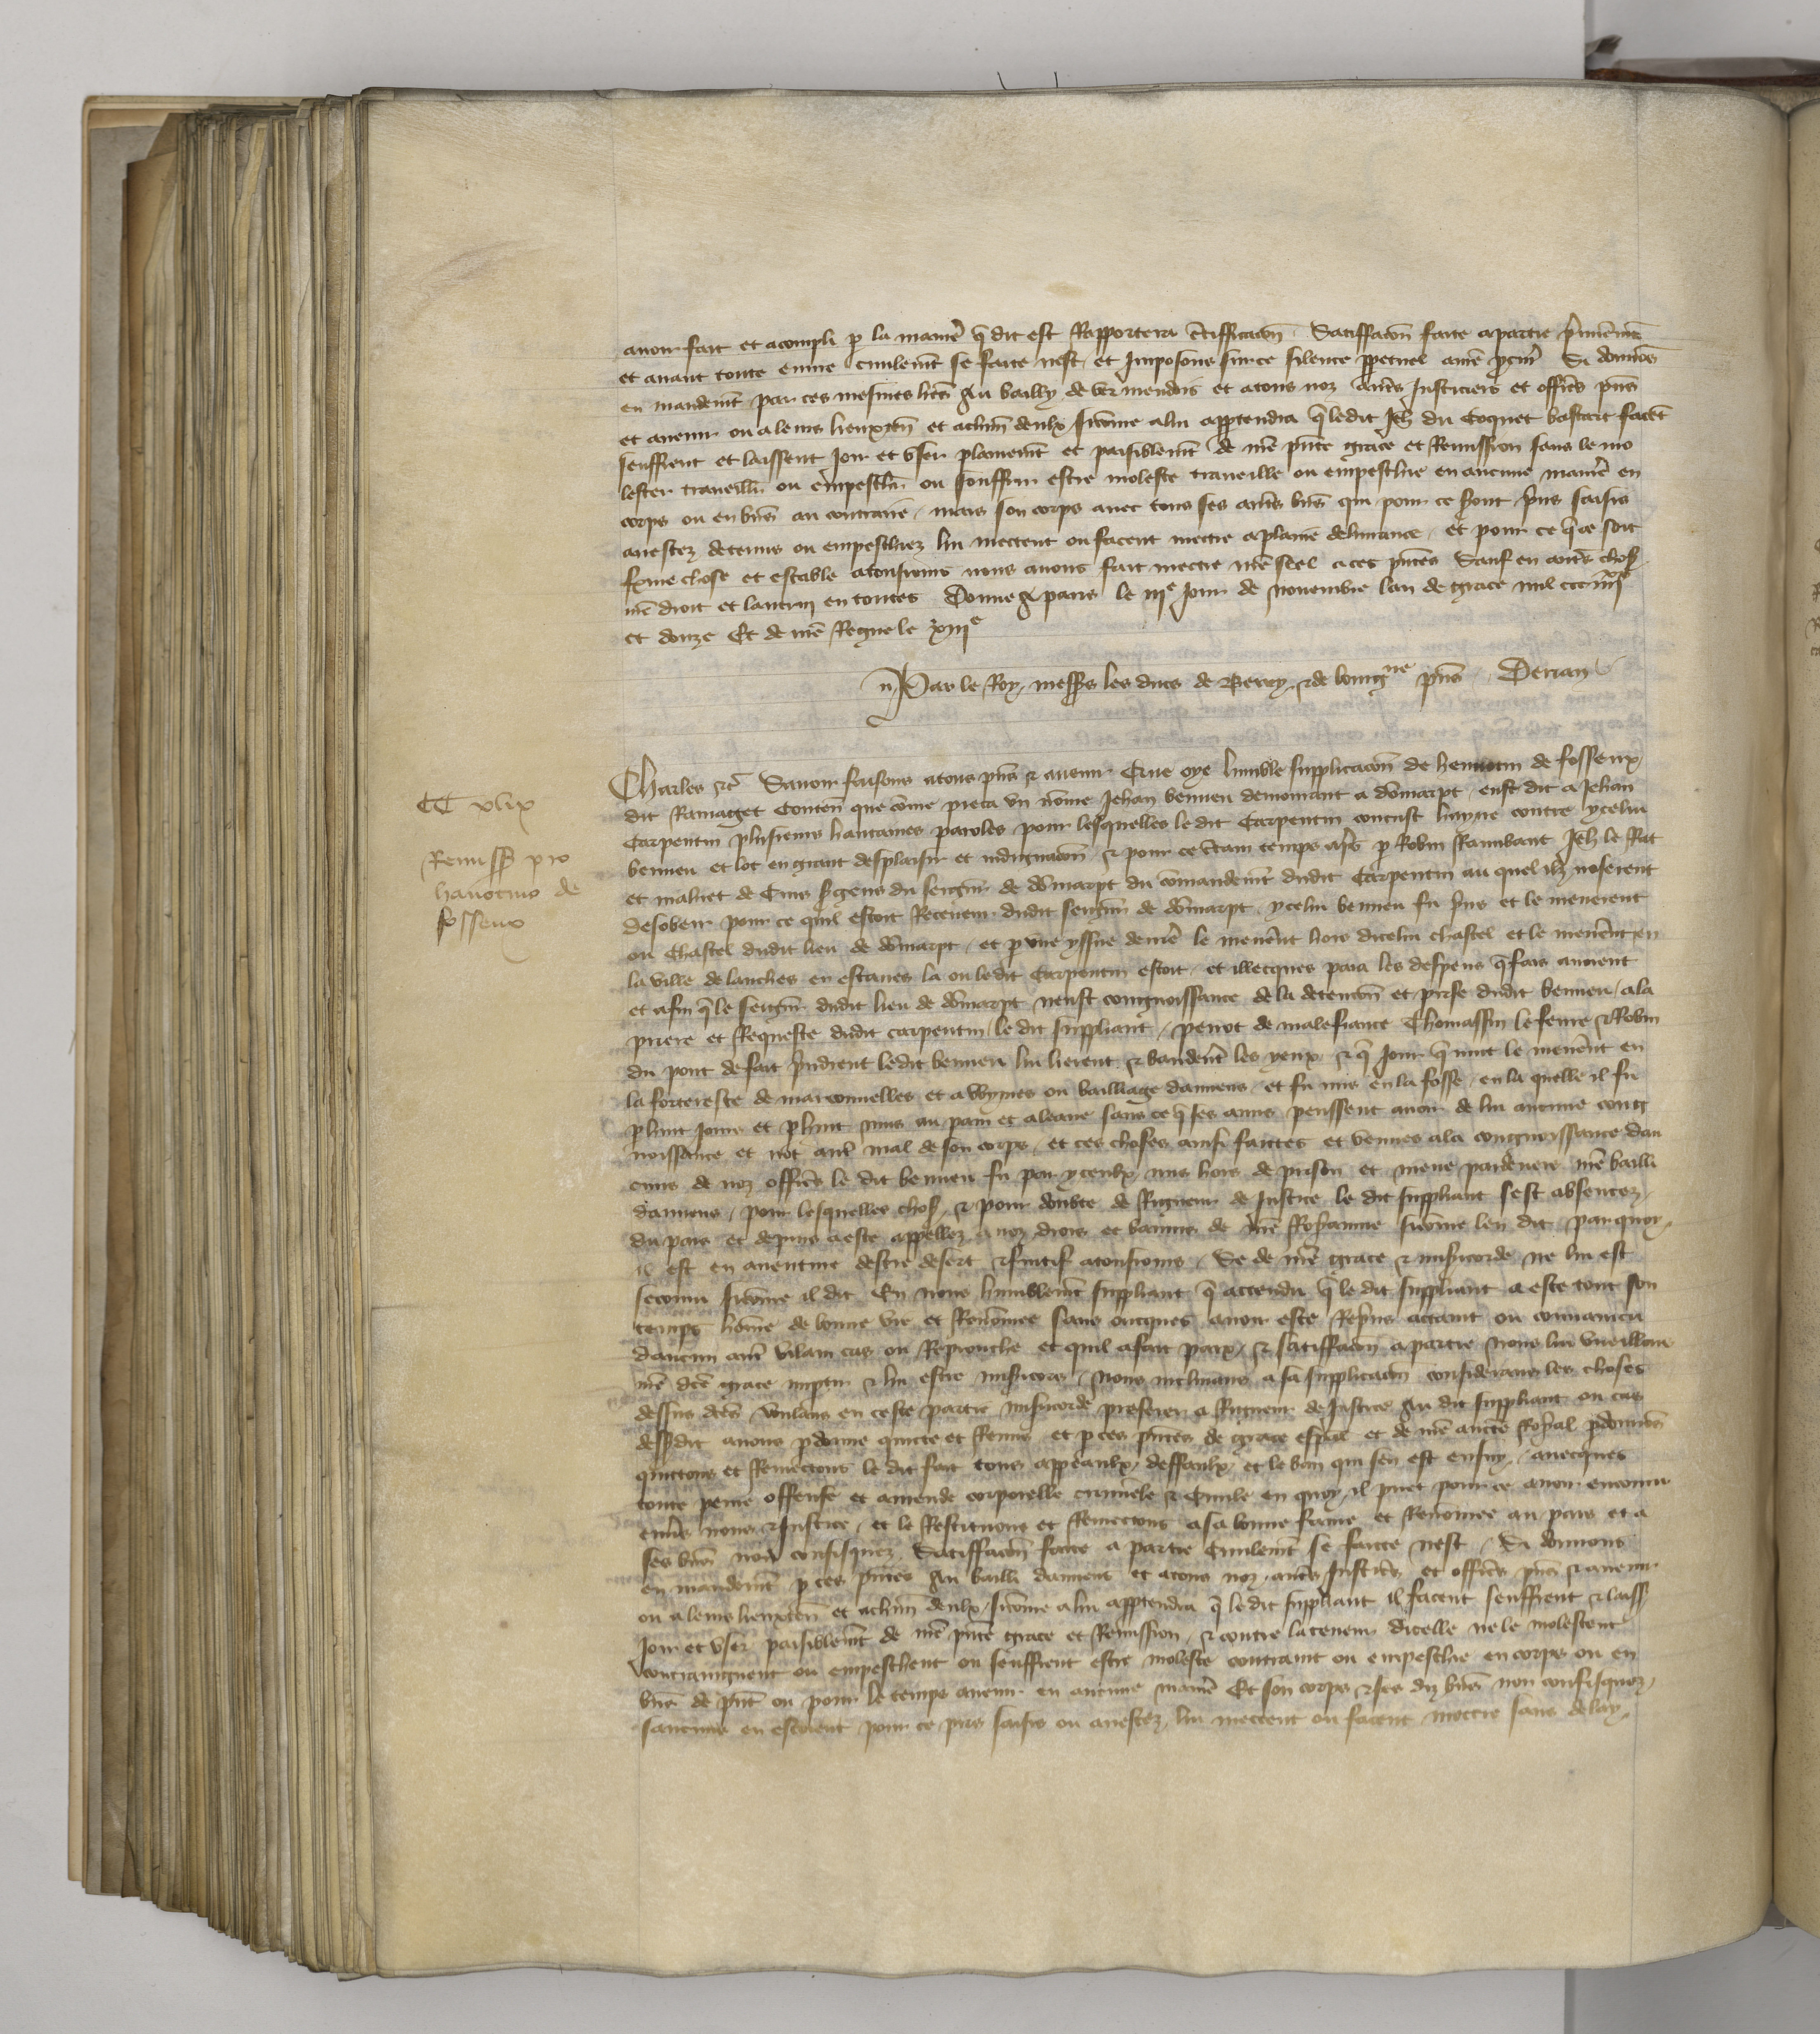 auoir fait et acompli p la manie q dit est Rapportera ctifficacon. Satiffacon faite a partie p̄mierem̄t
et auant toute euure ciuilemt se faite nest, et Imposons sur ce silence ppetuel a nr̄e pcur̄ Si donnons
en mandemt par ces mesmes lr̄es Au bailly de vermendois et a tous noz autr̄s Justiciers et offic̄s pn̄s
et auenir ou a leurs lieuxten̄ et a chūn deulx sicōme a lui apptendra q̄ ledit Jeh du Coquet bastart facēt
seuffrent et laissent Joir et vser plainemt et paisiblemt de nr̄e pn̄te grace et Remission sans le mo
lester traueillr̄ ou empeschr̄ ou souffrir estre moleste traueille ou empeschie en aucune manie en
corps ou en biēs au contraire, mais son corps auec tous ses autr̄s biēs qui pour ce sont p̄ns saisis
arrestez detenus ou empeschez lui mectent ou facent mectre a plaine deliurance, et pour ce q̄ ce soit
ferme chose et estable a tousiours nous auons fait mectre nr̄e scel a ces pn̄tes Sauf en autr̄s chos̄
nr̄e droit et lautruy en toutes Donne A paris le iije Jour de Nouembre lan de grace mil ccc iiijxx
et douze Et de nr̄e Regne le xiije
Par le Roy, messrs les ducs de Berry & de bourgne pn̄s Derian
CC xlix
Remiss pro
hanotino de
fosseux
Charles &c Sauoir faisons a tous pn̄s & auenir Que oye humble supplicacon de hennotin de fosseux
dit Ramaget Conten̄ que cōme pieca vn nōme Jehan bennieu demourant a dōmarpt, eust dit a Jehan
Carpentin plusieurs haultaines paroles pour lesquelles le dit Carpentin concust hayne contre ycelui
bennieu et lot en grant desplaisir et indignacon, & pour ce c̄tain temps aps̄ p Robin Rambaut Jeh le ffat
et mahiet de s̄gens du seigr̄ de dōmarpt du cōmandemt dudit Carpentin au quel ilz noserent
desobeir pour ce quil estoit Receueur dudit seigr̄ de dōmarpt ycelui bennieu fu p̄ns et le menerent
ou Chastel dudit lieu de dōmarpt, et p vne yssue derr̄e le menerēt hors dicelui chastel et le menerēt en
la ville de lanches en estaues la ou ledit Carpentin estoit, et illecques paia les despens q̄ fais auoient
et afin q̄ le seigr̄ dudit lieu de dōmarpt neust congnoissance de la detencon et prise dudit bennieu, a la
priere et Requeste dudit carpentin, le dit suppliant, perrot de malefiance Thomassin lefeure & Robin
du pont de fait p̄ndrent ledit bennieu lui lierent & banderēt les yeux & q̄ Jour q̄ nuit le menerēt en
la forteresce de marconnelles et a Wymes ou bailliage damiens, et fu mis en la fosse, en la quelle il fu
p huit Jours et p huit nuis au pain et a leaue sans ce q̄ ses amis peussent auoir de lui aucune cong
noissance et not autr̄ mal de son corps, et ces choses ainsi faittes et venues a la congnoissance dau
cuns de noz offic̄s le dit bennieu fu par yceulx mis hors de prison et mene pardeuers nr̄e bailli
damiens, pour lesquelles chos̄, & pour doubte de Rigueur de Justice le dit suppliant sest absentez
du pais et depuis a este appellez a noz drois et bannis de nr̄e Royaume sicōme len dit parquoy
il est en auenture destre desert & fuitif a tousiours, Se de nr̄e grace & mis̄icorde ne lui est
secouru sicōme il dit En nous humblemt suppliant q̄ attendu q̄ le dit suppliant a este tout son
temps hōme de bonne vie et Renōmee sans oncques auoir este Rep̄ns attaint ou conuaincu
daucun autr̄ vilain cas ou Reprouche et quil a fait paix, & satiffacon a partie nous lui vueillons
nr̄e dc̄e grace imp̄tir & lui estre mis̄icors, Nous inclinans a sa supplicacon considerans les choses
dessus dc̄es voulans en ceste partie mis̄icorde preferer a Rigueur de Justice Au dit suppliant ou cas
dess̄dit auons p̄donne quicte et Remis, et p ces pn̄tes de grace espal̄ et de nr̄e aucte Royal p̄donnōs
quictons et Remectons le dit fait tous appeaulx, deffaulx, et le ban qui sen est ensuy, auecques
toute peine offense et amende corporelle criminele & Ciuile en quoy, il puet pour ce auoir encouru
enu̅s nous & Justice, et le Restituons et Remectons a sa bonne fame et Renōmee au pais et a
ses biēs non confisquez, Satiffacon faite a partie Ciuilemt se faitte nest, Si donnons
en mandemt p ces pn̄tes Au bailli damiens et a tous noz autr̄s Justic̄s et offic̄s pn̄s & auenir
ou a leurs lieuxten̄ et a chūn deulx, sicōme a lui apptendra q̄ le dit suppliant il facent seuffrent & laiss̄
Joir et vser paisiblemt de nr̄e pn̄te grace et Remission, & contre la teneur dicelle ne le molestent
contraingnent ou empeschent ou seuffrent estre moleste contraint ou empeschie en corps ou en
biēs de pn̄t ou pour le temps auenir en aucune manie Et son corps & ses diz biēs non confisquez,
saucuns en estoient pour ce pris saisis ou arrestez, lui mectent ou facent mectre sans delay